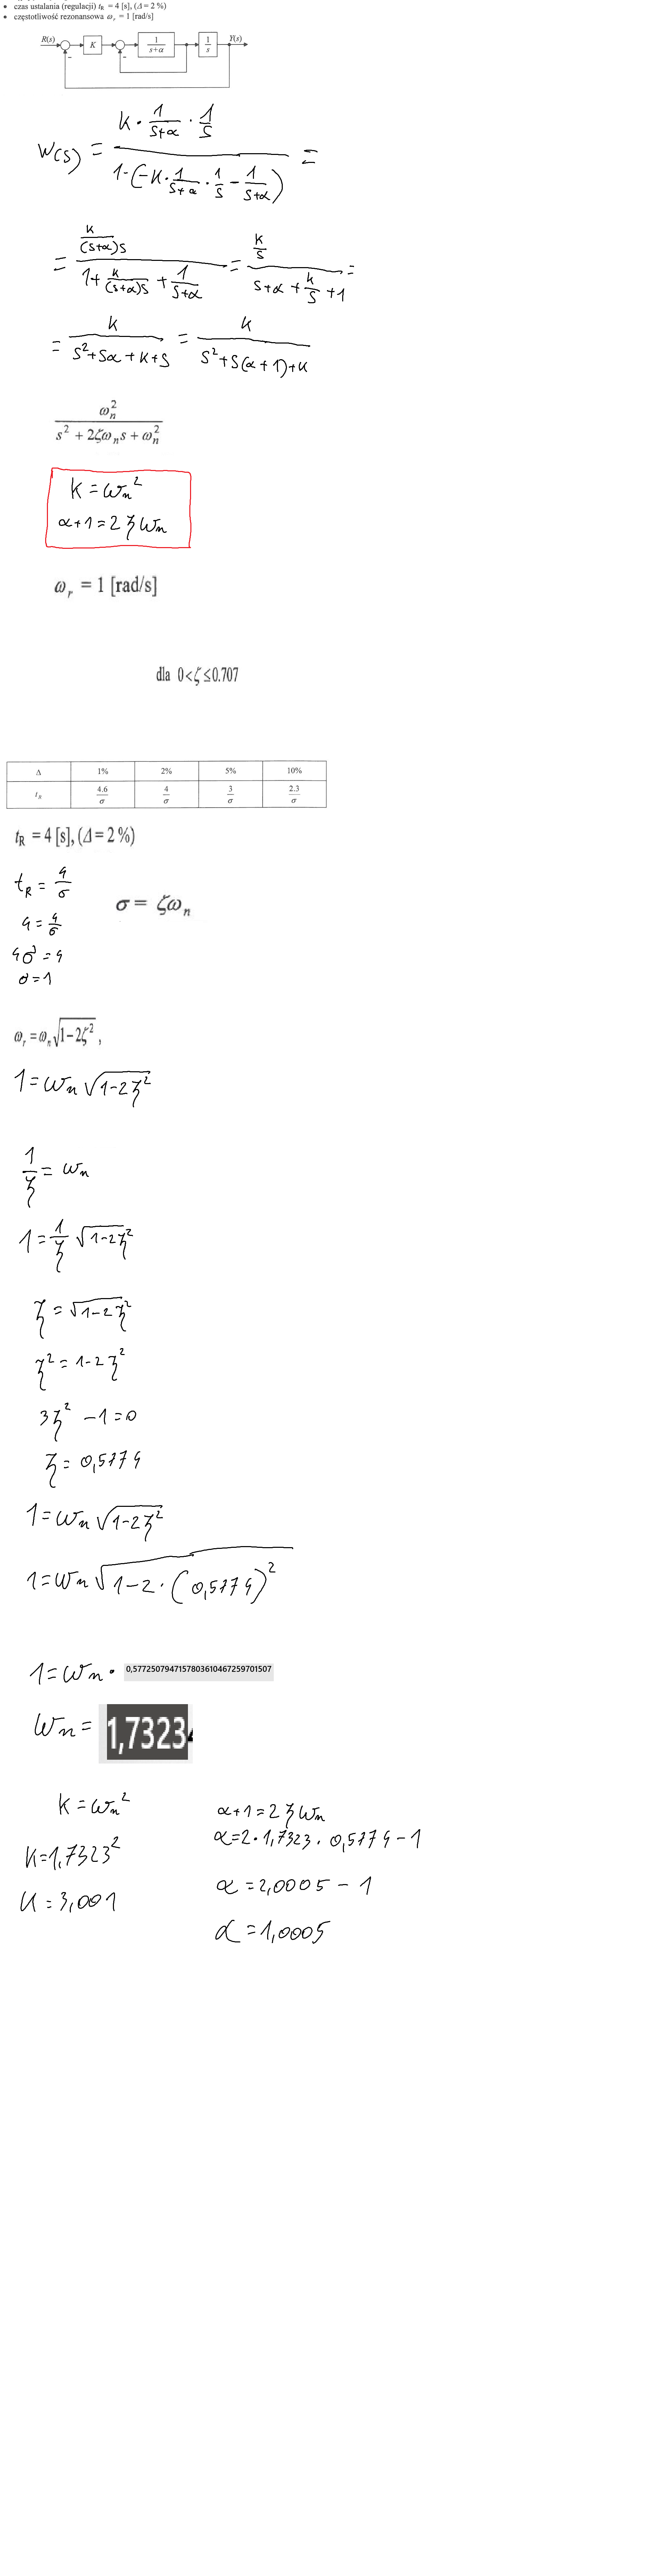 • czas ustalania (regulacji) t_R = 4 [s], (Δ = 2 %)
• częstotliwość rezonansowa ω_r = 1 [rad/s]
R(s) K 1/(s+α) 1/s Y(s)
- -
W(s) = (K · 1/(s+α) · 1/s) / (1-(-K · 1/(s+α) · 1/s - 1/(s+α))) =
= (K/((s+α)s)) / (1 + K/((s+α)s) + 1/(s+α)) = (K/s) / (s+α + K/s + 1) =
= K / (s²+sα+K+s) = K / (s²+s(α+1)+K)
ω_n² / (s² + 2ζω_n s + ω_n²)
K = ω_n²
α+1 = 2ζω_n
ω_r = 1 [rad/s]
dla 0<ζ≤0.707
Δ 1% 2% 5% 10%
t_R 4.6/σ 4/σ 3/σ 2.3/σ
t_R = 4 [s], (Δ = 2 %)
t_R = 4/σ
σ = ζω_n
4 = 4/σ
4σ = 4
σ = 1
ω_r = ω_n√(1-2ζ²) ,
1 = ω_n √(1-2ζ²)
1/ζ = ω_n
1 = 1/ζ √(1-2ζ²)
ζ = √(1-2ζ²)
ζ² = 1-2ζ²
3ζ² - 1 = 0
ζ = 0,5774
1 = ω_n √(1-2ζ²)
1 = ω_n √(1-2·(0,5774)²)
1 = ω_n · 0,5772507947157803610467259701507
ω_n = 1,7323
K = ω_n²
α+1 = 2ζω_n
K = 1,7323²
α = 2·1,7323·0,5774-1
K = 3,001
α = 2,0005 - 1
α = 1,0005